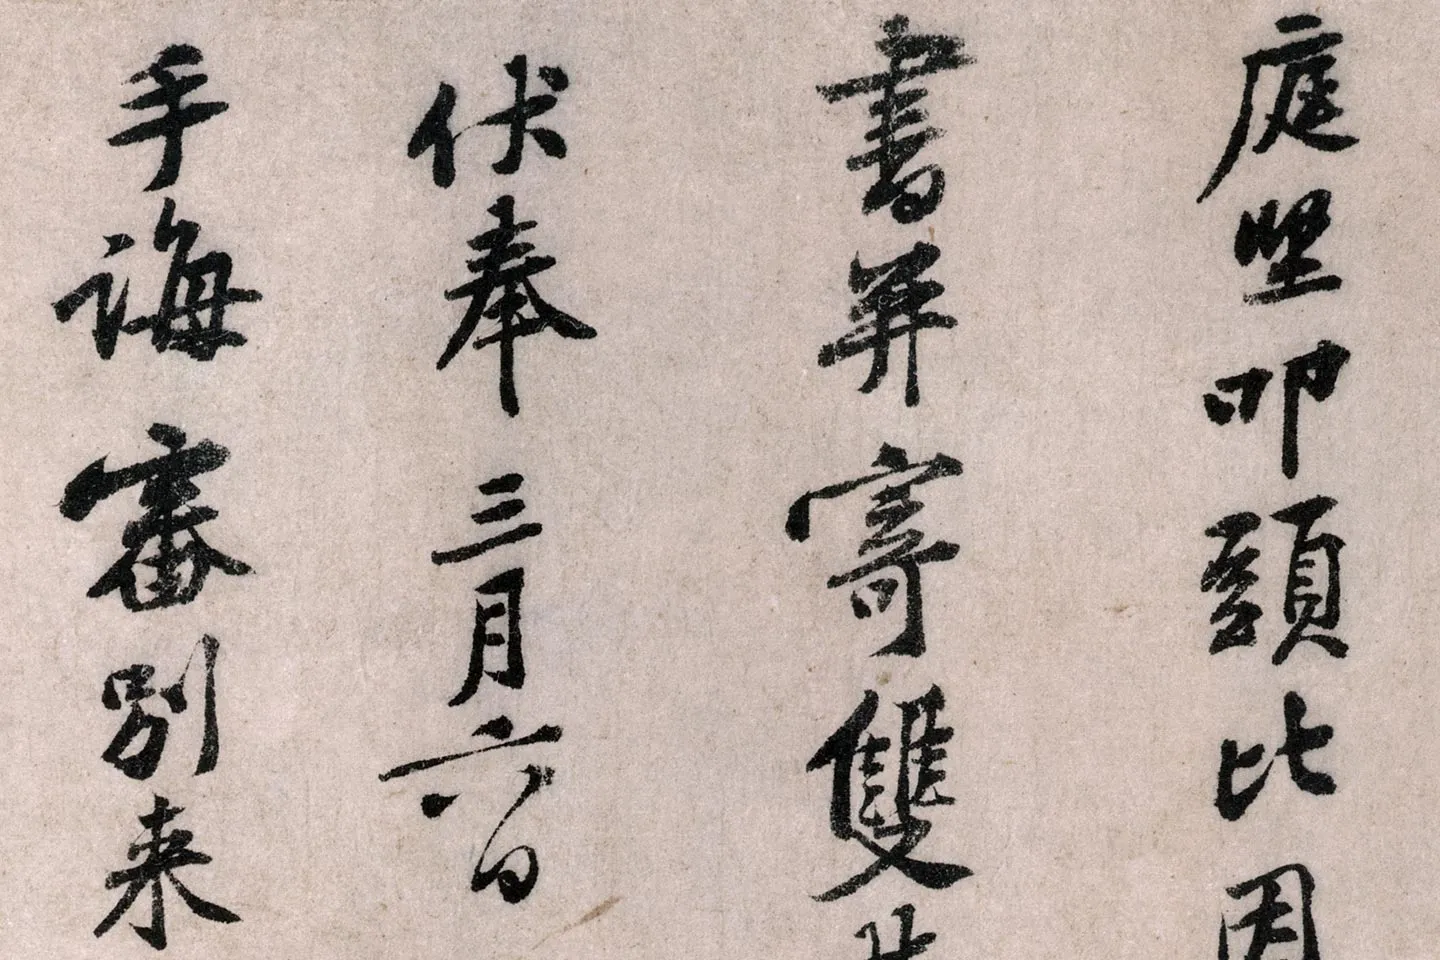 庭堅叩頭比因
書并寄雙井
伏奉三月六日
手誨審別来